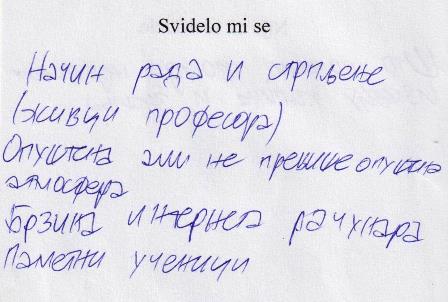 Svidelo mi se
Начин рада и стрпљење
(живци професора)
Опуштена али не превише опуштена
атмосфера
Брзина интернета рачунара
Паметни ученици